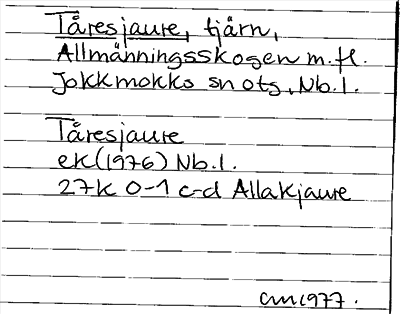 Tåresjaure, tjärn,
Allmänningsskogen m.fl.
Jokkmokks sn otg, Nb.l.
Tåresjaure
ek(1976) Nb.l.
27K 0-1 c-d Allakjaure
CM1977.